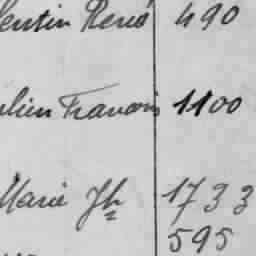 entin René 490
ulien Francois 1100
Marie Jh 1733
595